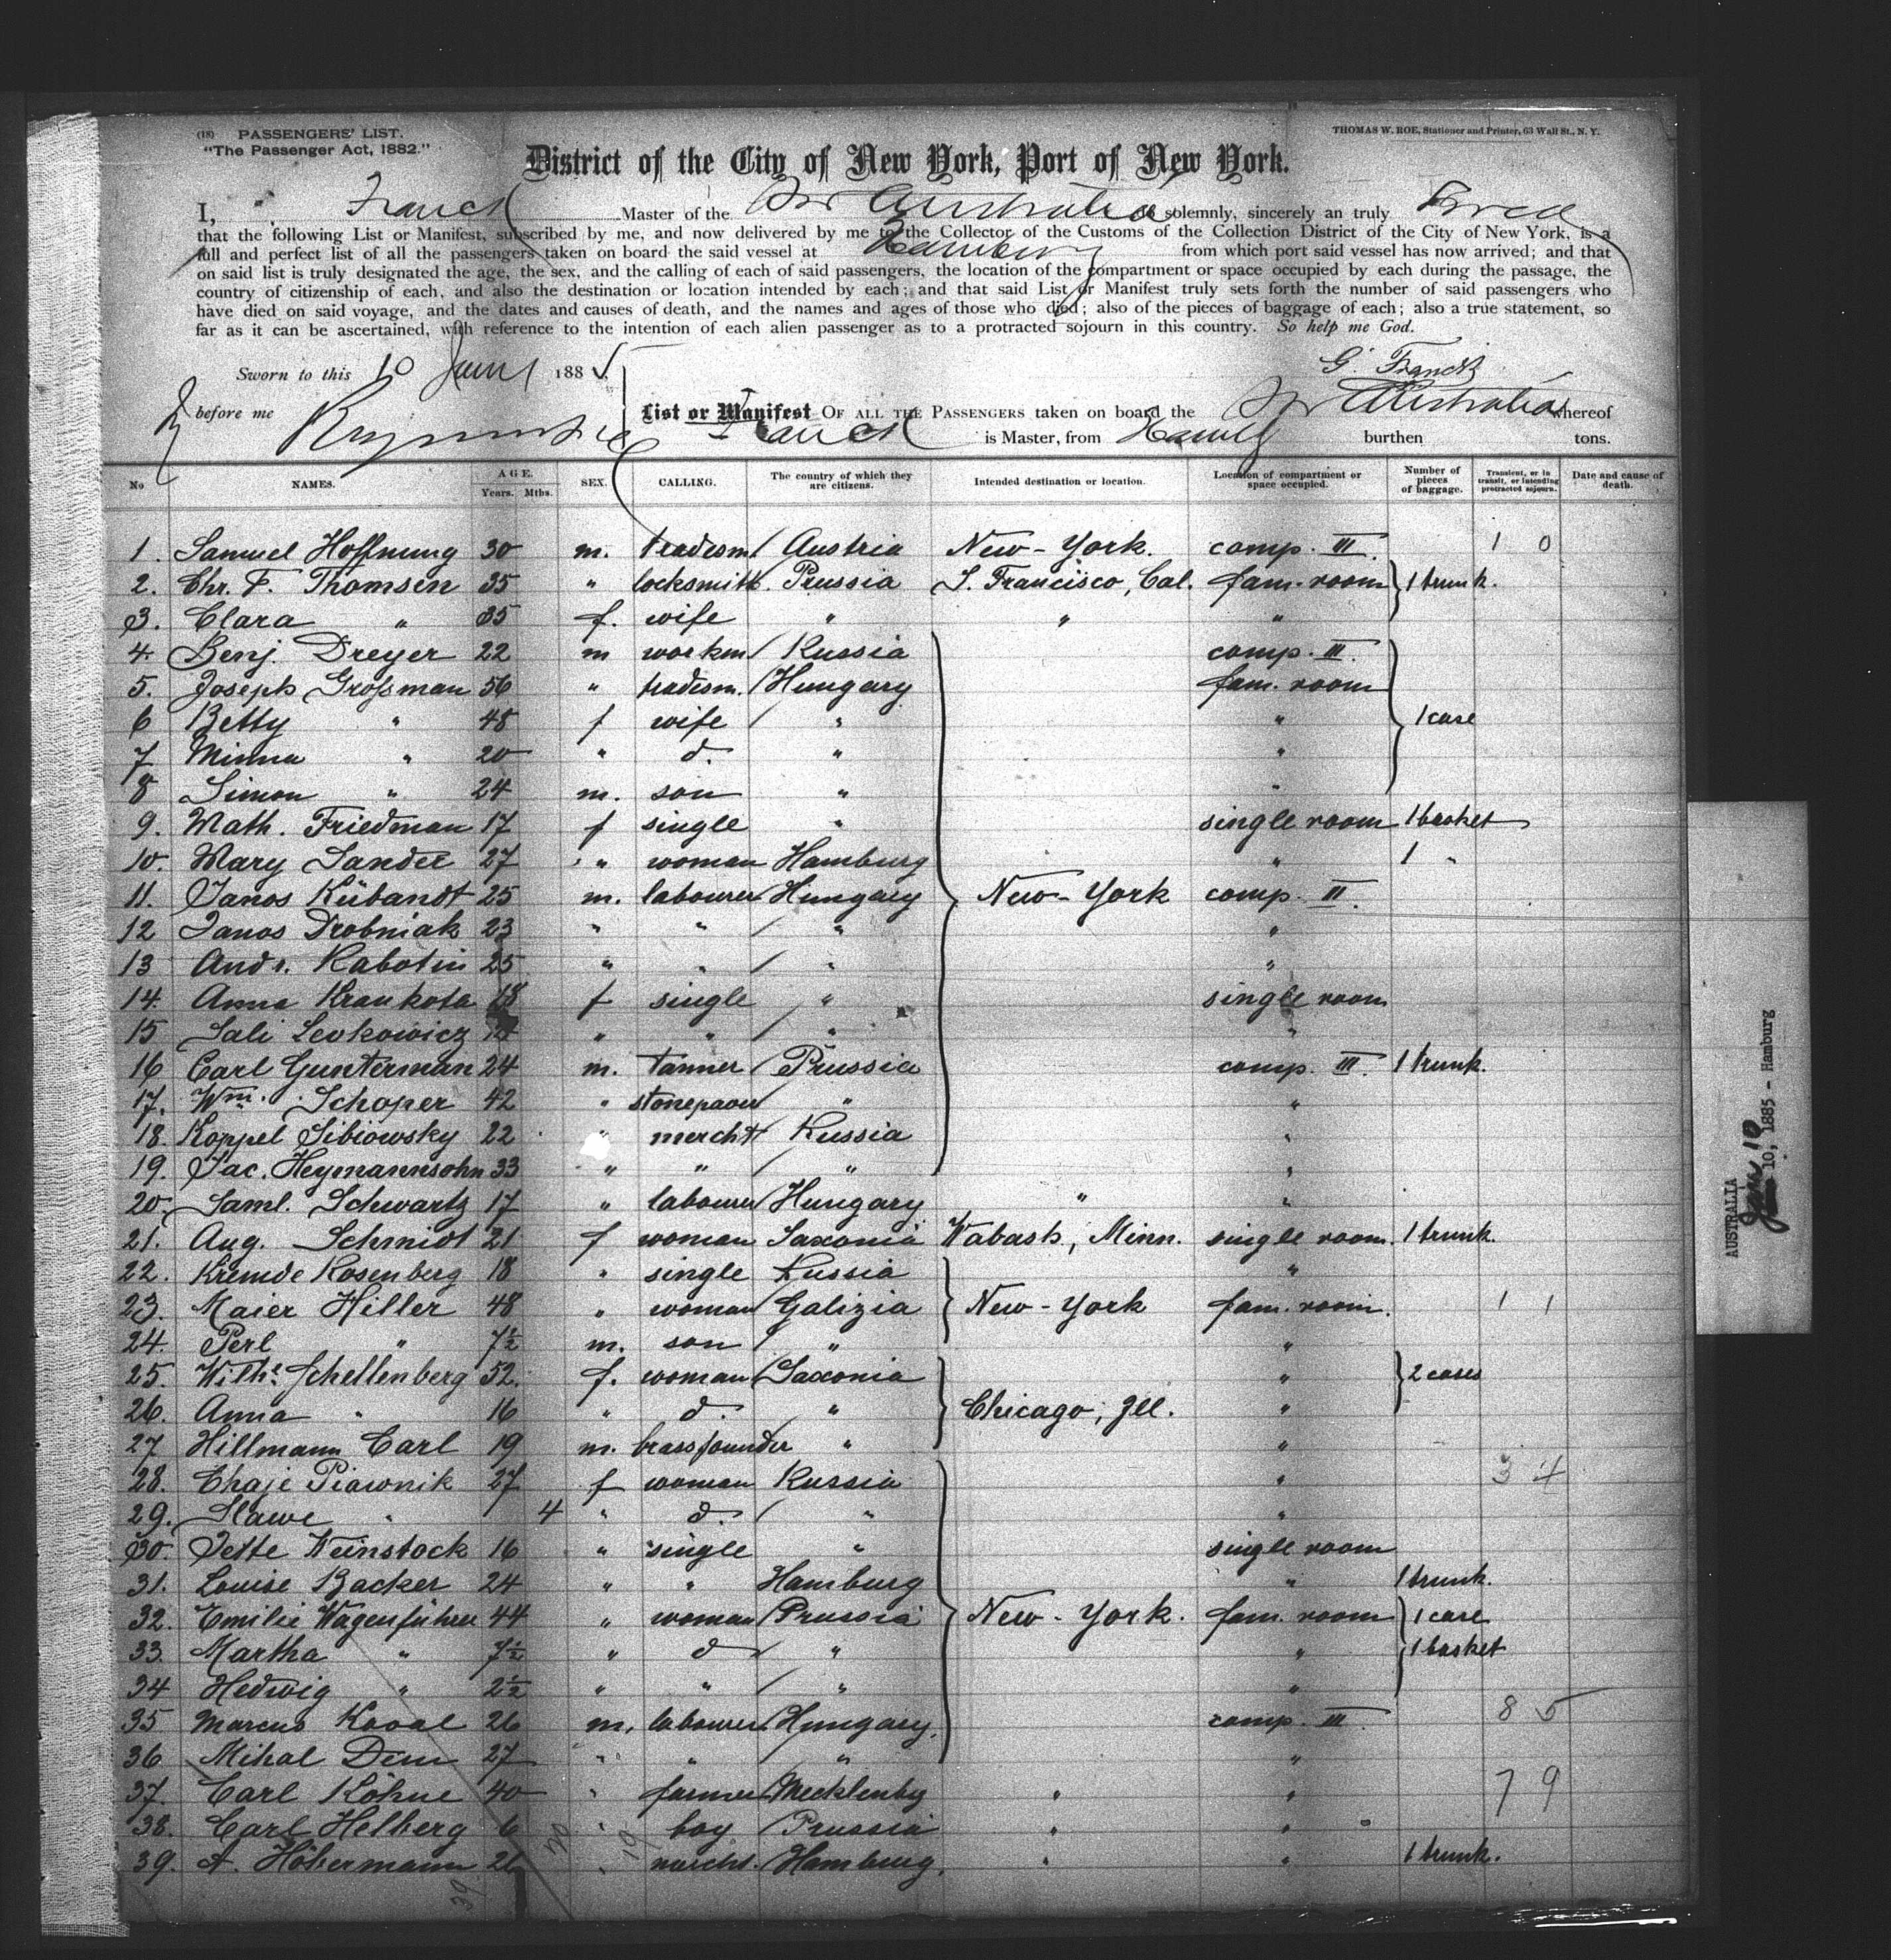 (18) PASSENGERS' LIST.
"The Passenger Act, 1882."
THOMAS W. ROE, Stationer and Printer, 63 Wall St., N. Y.
District of the City of New York, Port of New York.
I, Franck Master of the Australia do solemnly, sincerely an truly
that the following List or Manifest, subscribed by me, and now delivered by me to the Collector of the Customs of the Collection District of the City of New York, is a
full and perfect list of all the passengers taken on board the said vessel at Hamburg from which port said vessel has now arrived; and that
on said list is truly designated the age, the sex, and the calling of each of said passengers, the location of the compartment or space occupied by each during the passage, the
country of citizenship of each, and also the destination or location intended by each; and that said List or Manifest truly sets forth the number of said passengers who
have died on said voyage, and the dates and causes of death, and the names and ages of those who died; also of the pieces of baggage of each; also a true statement, so
far as it can be ascertained, with reference to the intention of each alien passenger as to a protracted sojourn in this country. So help me God.
G. Franck
Sworn to this 10 188 5
before me
List or Manifest OF ALL THE PASSENGERS taken on board the Australia whereof
Franck is Master, from Hambg burthen tons.
No NAMES. AGE. Years. Mths. SEX. CALLING. The country of which they are citizens. Intended destination or location. Location of compartment or space occupied. Number of pieces of baggage. Transient, or in transit, or intending protracted sojourn. Date and cause of death.
1. Samuel Hoffnung 30 m. tradesm. Austria New-York. comp. III. 1 0
2. Chr. F. Thomsen 35 " locksmith. Prussia S. Francisco, Cal. fam. room 1 trunk.
3. Clara " 35 f. wife " " "
4. Benj. Dreyer 22 m workm Russia comp. III.
5. Joseph Großman 56 " tradesm. Hungary fam. room
6 Betty " 48 f wife " " 1 case
7 Minna " 20 " d. " "
8 Simon " 24 m. son " "
9. Math. Friedman 17 f single " single room 1 basket
10. Mary Sander 27 " woman Hamburg " 1 "
11. Janos Kübandt 25 m. labourer Hungary New-York comp. III.
12 Janos Drobniak 23 " " " "
13 Andr. Kabotin 25 " " " "
14. Anna Krankota 18 f single " single room
15 Sali Levkowicz " " " "
16 Carl Gunterman 24 m. tanner Prussia comp. III. 1 trunk.
17. Wm. Schoper 42 " stonepaver " "
18. Koppel Sibiowsky 22 " mercht Russia "
19. Jac. Heymannsohn 33 " " " "
20. Saml. Schwartz 17 " labourer Hungary " "
21. Aug. Schmidt 21 f woman Saxonia Wabash, Minn. single room. 1 trunk.
22. Kremde Rosenberg 18 " single Russia "
23. Maier Hiller 48 " woman Galizia New-York fam. room. 1 1
24. Perl " 7½ m. son " "
25. Wilhe. Schellenberg 52. f. woman Saxonia " 2 cases
26. Anna " 16 " d. " Chicago, Ill. "
27 Hillmann Carl 19 m. brassfounder " "
28. Chaje Piawnik 27 f woman Russia " 3 4
29. Slawe " 4 " d. " "
30. Jette Weinstock 16 " single " single room
31. Louise Backer 24 " " Hamburg " 1 trunk.
32. Emilie Wagenführer 44 " woman Prussia New-York. fam. room 1 case
33. Martha " 7½ " d " " 1 basket
34 Hedwig " 2½ " " " "
35 Marcus Koval 26 m. labourer Hungary. comp. III. 8 5
36 Mihal Dem 27 " " " "
37. Carl Köhne 40 " farmer Mecklenbg " " 7 9
38. Carl Helberg 6 " boy Prussia " " "
39. A. Höbermann 26 " mercht. Hamburg. " " 1 trunk.
AUSTRALIA
Jan 10
10, 1885 - Hamburg